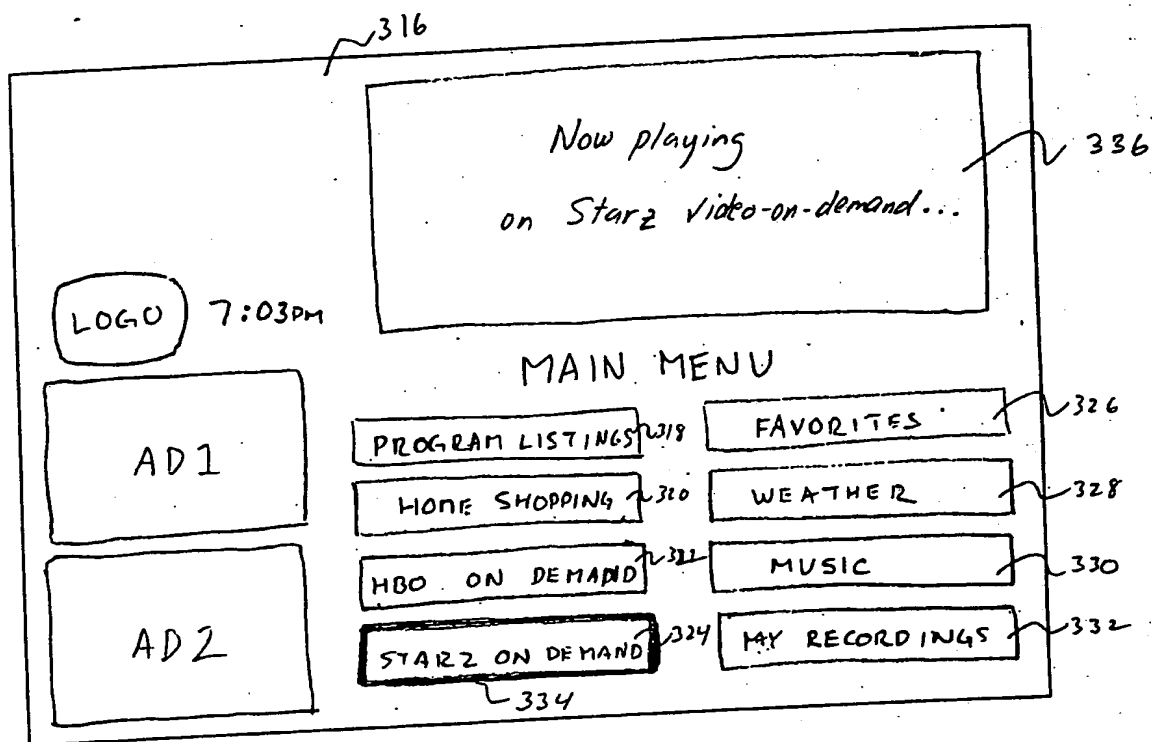 316
Now playing
on Starz video-on-demand...
336
LOGO 7:03PM
MAIN MENU
AD1
AD2
PROGRAM LISTINGS 318
HOME SHOPPING 320
HBO ON DEMAND 322
STARZ ON DEMAND 324
334
FAVORITES 326
WEATHER 328
MUSIC 330
MY RECORDINGS 332